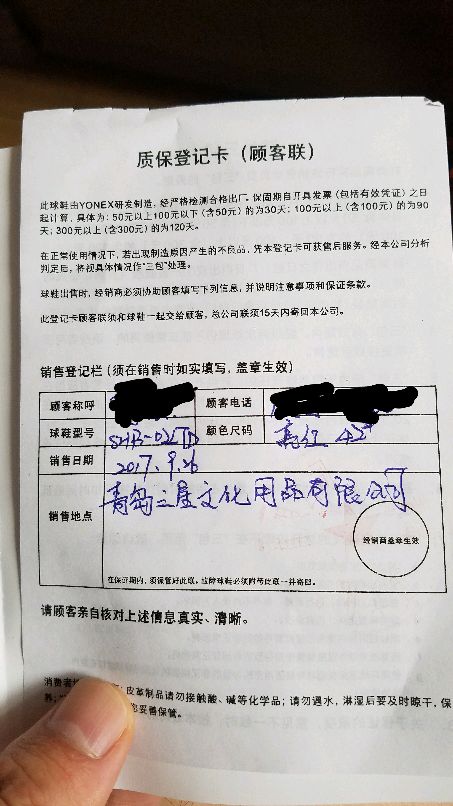 质保登记卡（顾客联）
此球鞋由YONEX研发制造，经严格检测合格出厂。保固期自开具发票（包括有效凭证）之日
起计算，具体为：50元以上100元以下（含50元）的为30天；100元以上（含100元）的为90
天；300元以上（含300元）的为120天。
在正常使用情况下，若出现制造质因产生的不良品，凭本登记卡可获售后服务。经本公司分析
判定后，将视具体情况作“三包”处理。
球鞋出售时，经销商必须协助顾客填写下列信息，并说明注意事项和保证条款。
此登记卡顾客联须和球鞋一起交给顾客，总公司联须15天内寄回本公司。
销售登记栏（须在销售时如实填写，盖章生效）
顾客称呼 顾客电话
球鞋型号 颜色尺码 亮红 42
销售日期 2017.9.26
销售地点 青岛三星文化用品有限公司
经销商盖章生效
在保证期内，须保管好此联，故障球鞋必须附带此联一并寄回。
请顾客亲自核对上述信息真实、清晰。
消费者 皮革制品请勿接触酸、碱等化学品；请勿遇水，淋湿后要及时晾干，保
养； 妥善保管。